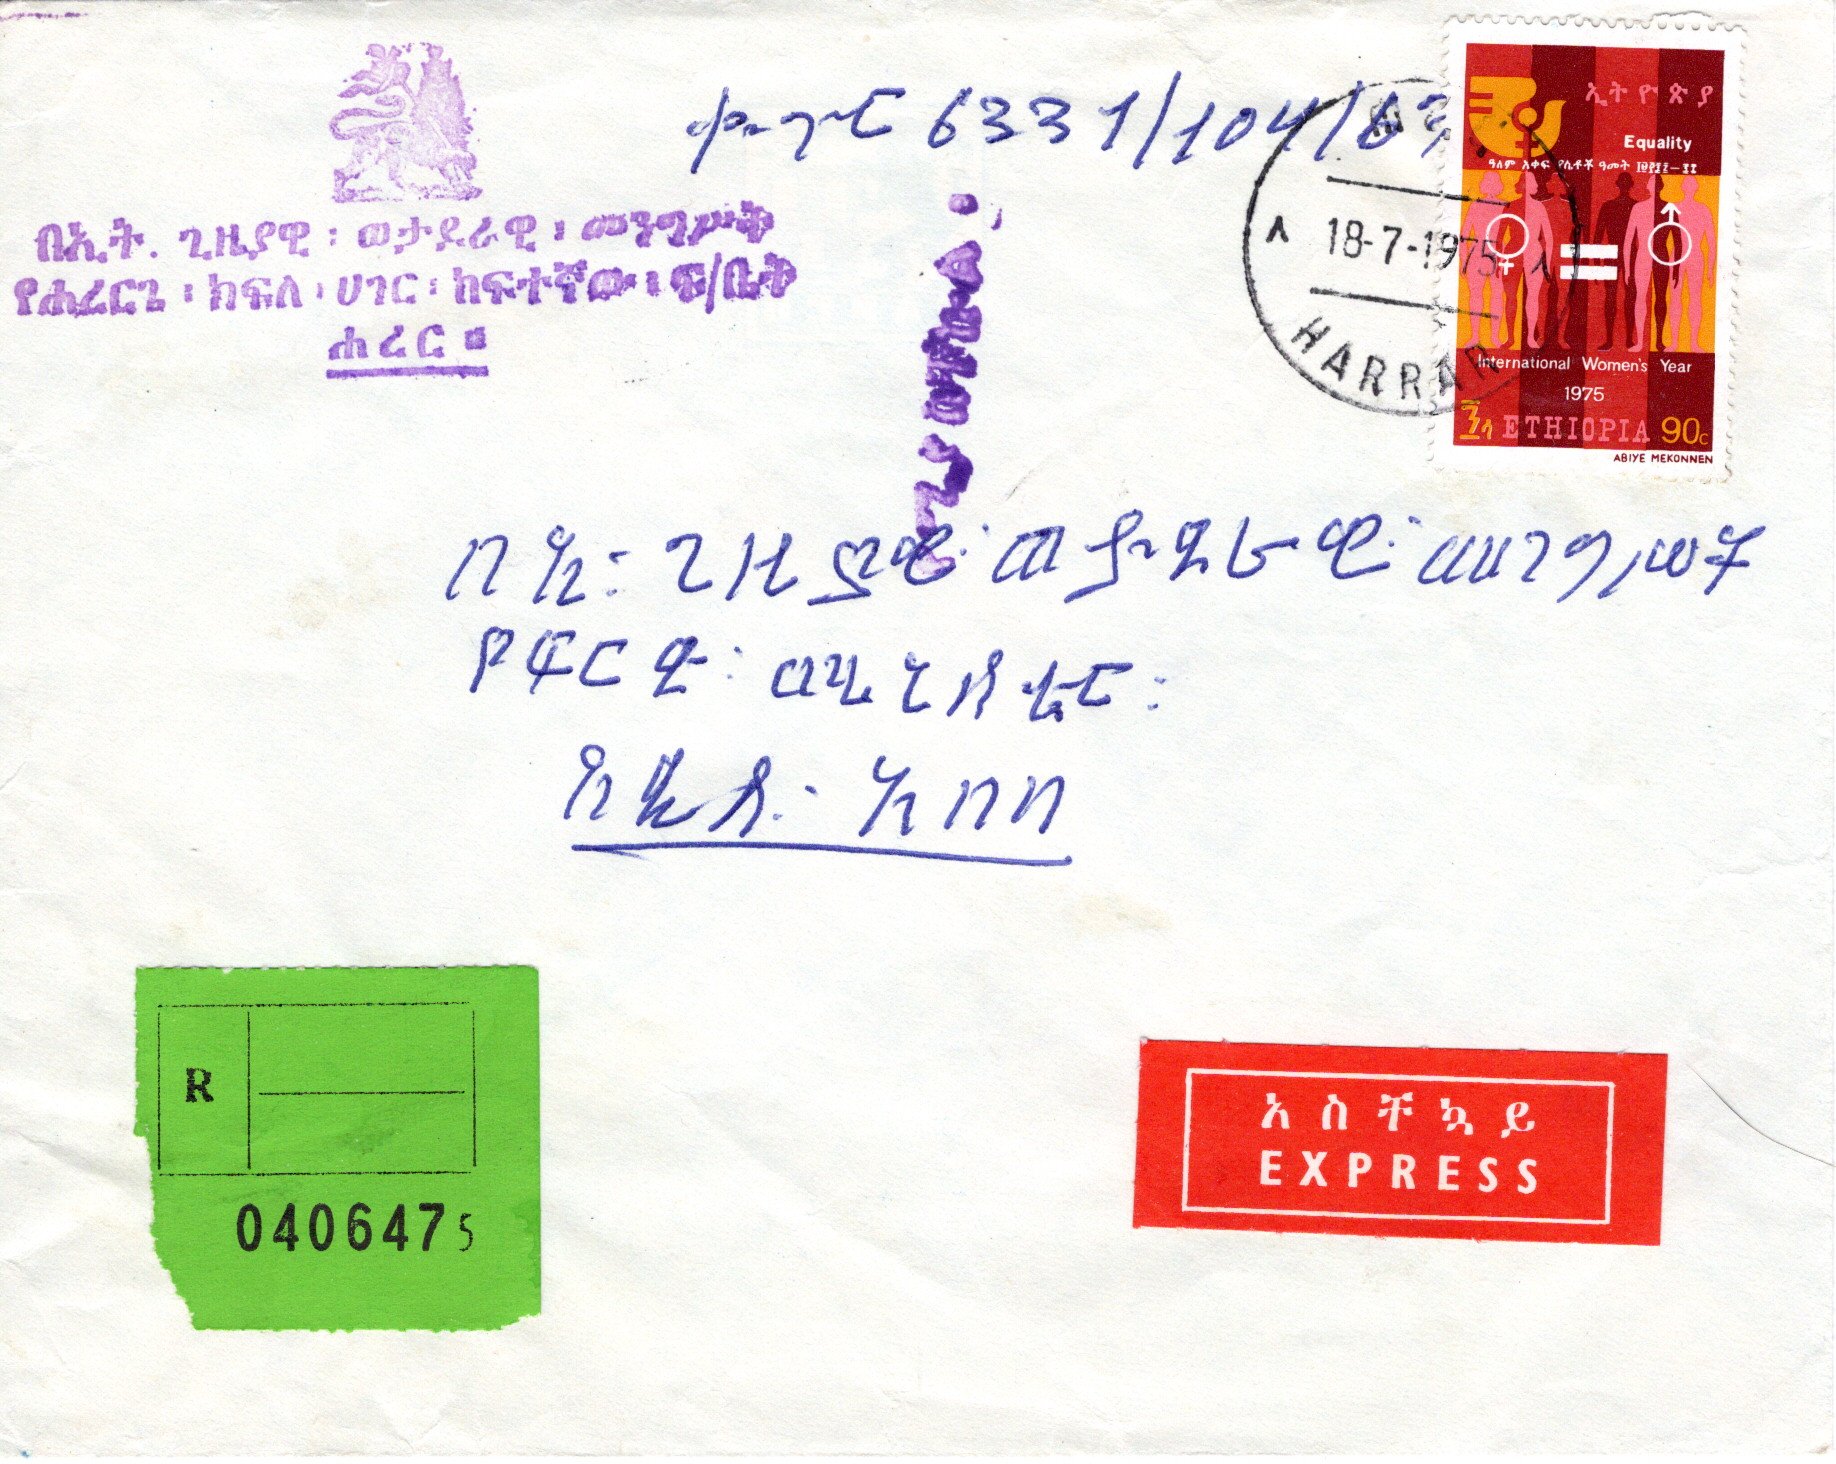 ቁጥር 6331/104/67
በኢት. ጊዜያዊ፡ወታደራዊ፡መንግሥት
የሐረርጌ፡ክፍለ፡ሀገር፡ከፍተኛው፡ፍ/ቤት
ሐረር።
ኢትዮጵያ
Equality
ዓለም አቀፍ የሴቶች ዓመት ፲፱፻፷፯-፷፰
International Women's Year
1975
ETHIOPIA 90c
ABIYE MEKONNEN
18-7-1975
HARRAR
በኢ፡ ጊዜያዊ፡ ወታደራዊ፡ መንግሥት
የፍርድ፡ ሚኒስቴር፡
አዲስ፡ አበባ
R
0406475
አስቸኳይ
EXPRESS